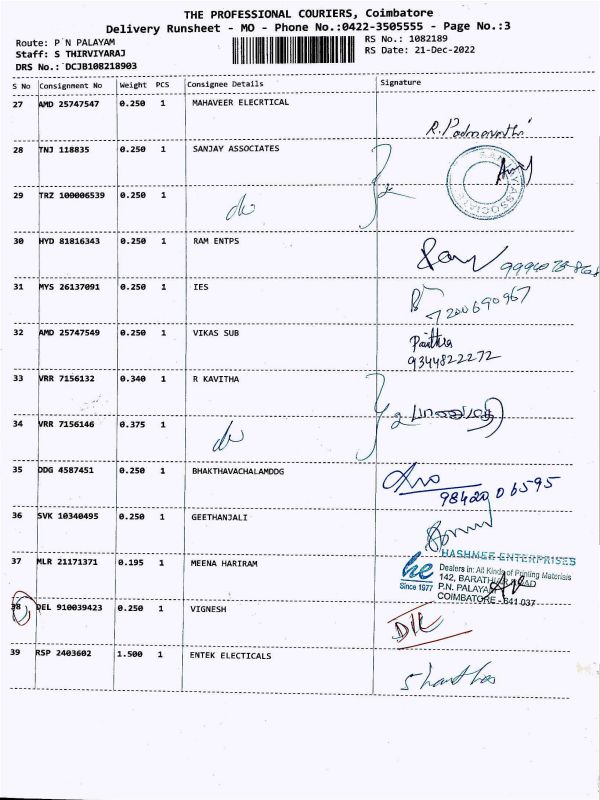 THE PROFESSIONAL COURIERS, Coimbatore
Delivery Runsheet - MO - Phone No.:0422-3505555 - Page No.:3
Route: P N PALAYAM
RS No.: 1082189
Staff: S THIRVIYARAJ
RS Date: 21-Dec-2022
DRS No.: DCJB108218903
S No Consignment No Weight PCS Consignee Details Signature
27 AMD 25747547 0.250 1 MAHAVEER ELECRTICAL
R. Padmavathi
28 TNJ 118835 0.250 1 SANJAY ASSOCIATES
29 TRZ 100006539 0.250 1
do
30 HYD 81816343 0.250 1 RAM ENTPS
31 MYS 26137091 0.250 1 IES
7200690967
32 AMD 25747549 0.250 1 VIKAS SUB
9344822272
33 VRR 7156132 0.340 1 R KAVITHA
34 VRR 7156146 0.375 1
do
35 DDG 4587451 0.250 1 BHAKTHAVACHALAMDDG
98420 06595
36 SVK 10340495 0.250 1 GEETHANJALI
37 MLR 21171371 0.195 1 MEENA HARIRAM
HASHMEE ENTERPRISES
he
Since 1977
Dealers in: All Kinds of Printing Materials
142, BARATHI ROAD
P.N. PALAYAM
COIMBATORE - 641 037
38 DEL 910039423 0.250 1 VIGNESH
D/L
39 RSP 2403602 1.500 1 ENTEK ELECTICALS
Shantha